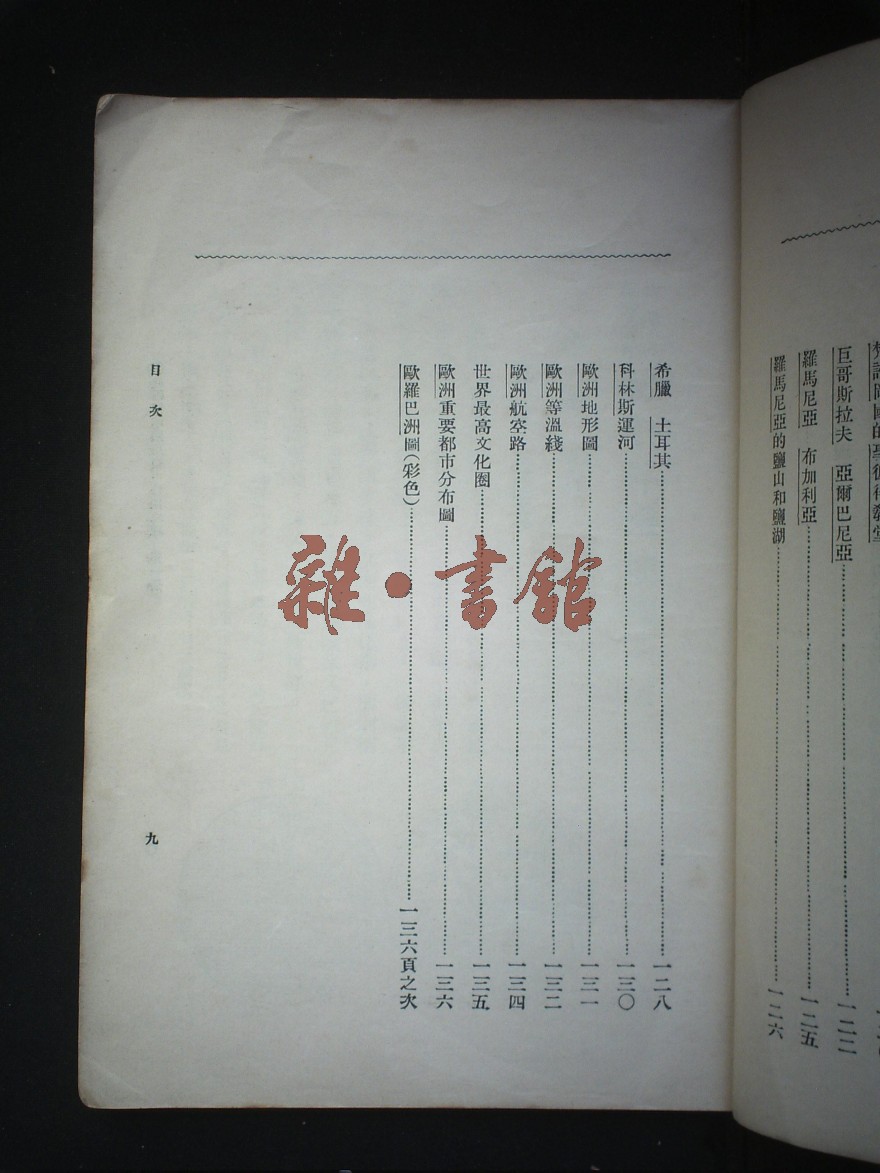 羅馬尼亞 布加利亞……一二五
羅馬尼亞的鹽山和鹽湖……一二六
希臘 土耳其……一二八
科林斯運河……一三〇
歐洲地形圖……一三一
歐洲等溫綫……一三二
歐洲航空路……一三四
世界最高文化圈……一三五
歐洲重要都市分布圖……一三六
歐羅巴洲圖(彩色)……一三六頁之次
目次
九
雜·書館